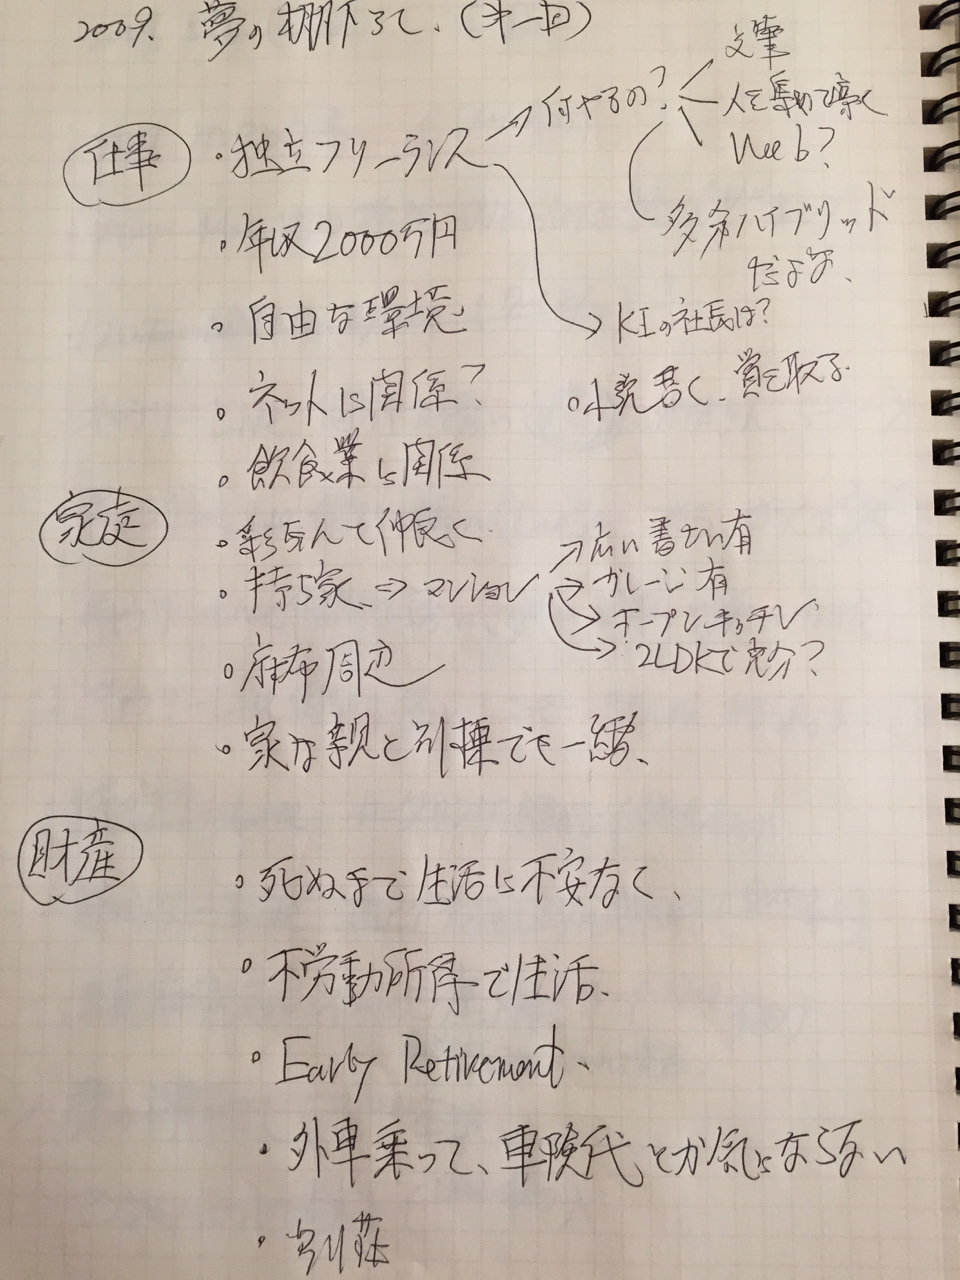 2009. 夢の棚下ろし、(第一回)
仕事
・独立フリーランス
→何やるの?
文筆
人を集めて稼ぐ
Web?
多分ハイブリッド
だよな、
→KIの社長は?
・小説書く、賞を取る
・年収2000万円
・自由な環境
・ネットに関係?
・飲食業に関係
家庭
・仲良く
・持ち家、⇒マンション
→広い書さい有
→ガレージ有
→オープンキッチン
→2LDKで充分?
・麻布周辺
・親と別棟でも一緒、
財産
・死ぬまで生活に不安なく、
・不労動所得で生活、
・Early Retirement、
・外車乗って、車険代とか気にならない
・別荘